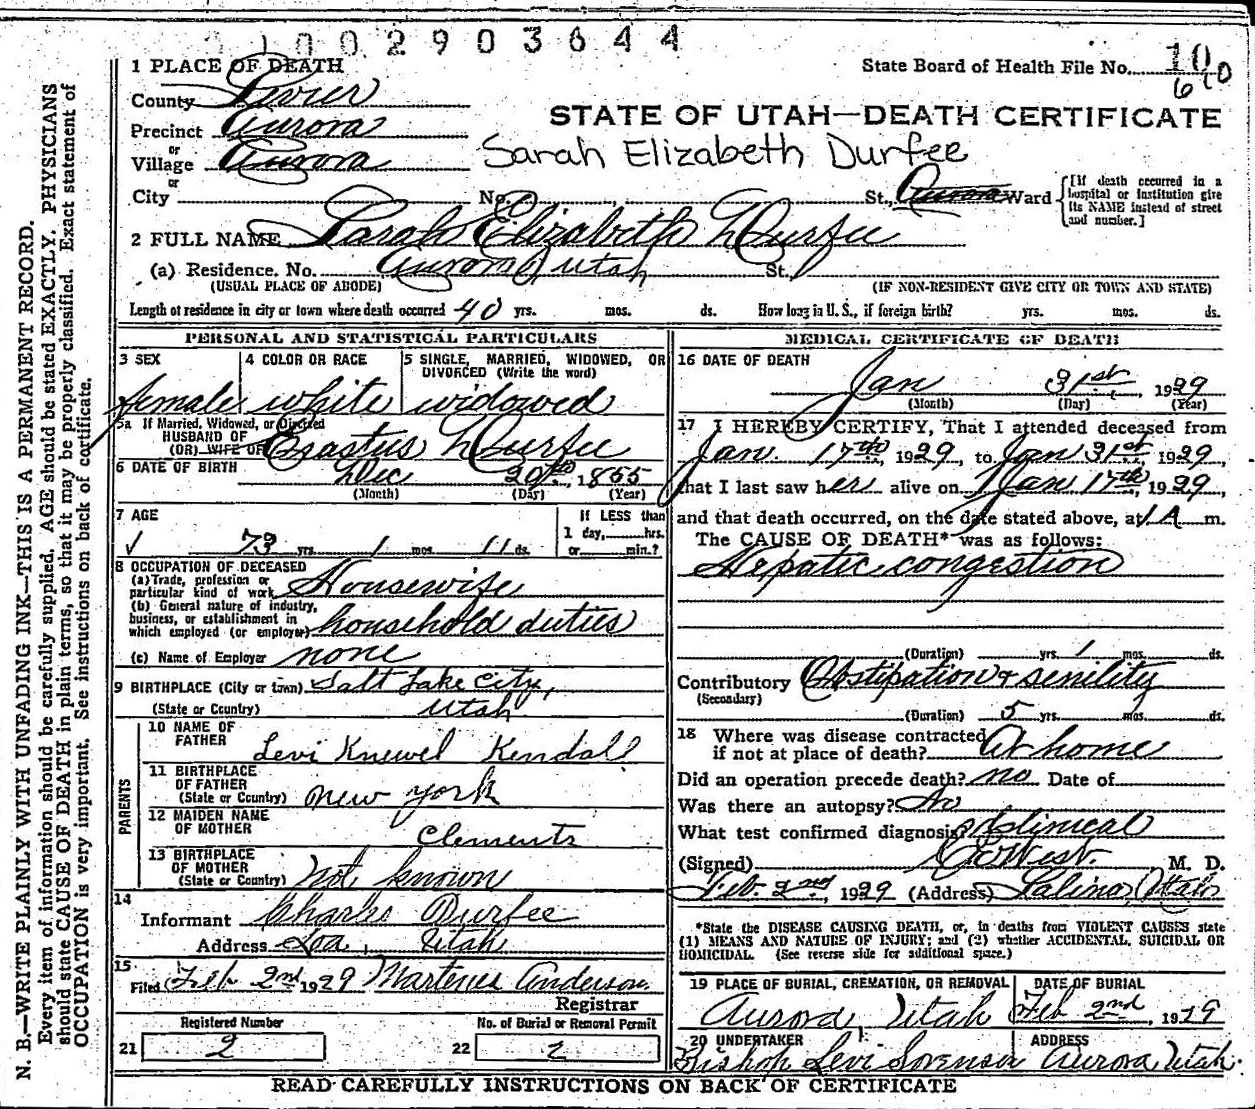 0100290 3644
1 PLACE OF DEATH
State Board of Health File No. 10
610
County Sevier
STATE OF UTAH—DEATH CERTIFICATE
Precinct Aurora
or
Village Aurora
Sarah Elizabeth Durfee
or
City No. St., Aurora Ward
[If death occurred in a hospital or institution give its NAME instead of street and number.]
2 FULL NAME Sarah Elizabeth Durfee
(a) Residence. No. Aurora Utah St.
(USUAL PLACE OF ABODE) (IF NON-RESIDENT GIVE CITY OR TOWN AND STATE)
Length of residence in city or town where death occurred 40 yrs. mos. ds. How long in U. S., if foreign birth? yrs. mos. ds.
PERSONAL AND STATISTICAL PARTICULARS
3 SEX
female
4 COLOR OR RACE
white
5 SINGLE, MARRIED, WIDOWED, OR
DIVORCED (Write the word)
widowed
5a If Married, Widowed, or Divorced
HUSBAND OF
(OR) WIFE OF Erastus Durfee
6 DATE OF BIRTH
Dec 20th, 1855
(Month) (Day) (Year)
7 AGE
73 yrs. 1 mos. 11 ds.
If LESS than
1 day, hrs.
or min.?
8 OCCUPATION OF DECEASED
(a) Trade, profession or
particular kind of work Housewife
(b) General nature of industry,
business, or establishment in
which employed (or employer) household duties
(c) Name of Employer none
9 BIRTHPLACE (City or town) Salt Lake City,
(State or Country) Utah
PARENTS
10 NAME OF
FATHER
Levi Knewel Kendall
11 BIRTHPLACE
OF FATHER
(State or Country) New York
12 MAIDEN NAME
OF MOTHER
Clements
13 BIRTHPLACE
OF MOTHER
(State or Country) Not known
14
Informant Charles Durfee
Address Loa, Utah
15
Filed Feb 2nd 1929 Martenus Anderson
Registrar
Registered Number
21 2
No. of Burial or Removal Permit
22 2
MEDICAL CERTIFICATE OF DEATH
16 DATE OF DEATH
Jan 31st, 1929
(Month) (Day) (Year)
17 I HEREBY CERTIFY, That I attended deceased from
Jan. 17th, 1929, to Jan 31st, 1929,
that I last saw her alive on Jan 17th, 1929
and that death occurred, on the date stated above, at 1 A m.
The CAUSE OF DEATH* was as follows:
Hepatic congestion
(Duration) yrs. 1 mos. ds.
Contributory Obstipation & senility
(Secondary)
(Duration) 5 yrs. mos. ds.
18 Where was disease contracted
if not at place of death? At home
Did an operation precede death? no Date of
Was there an autopsy? No
What test confirmed diagnosis? Clinical
(Signed) West. M. D.
Feb. 2nd, 1929 (Address) Salina, Utah
*State the DISEASE CAUSING DEATH, or, in deaths from VIOLENT CAUSES state
(1) MEANS AND NATURE OF INJURY; and (2) whether ACCIDENTAL, SUICIDAL OR
HOMICIDAL. (See reverse side for additional space.)
19 PLACE OF BURIAL, CREMATION, OR REMOVAL
Aurora Utah
DATE OF BURIAL
Feb 2nd, 1929
20 UNDERTAKER
Bishop Levi Sorenson
ADDRESS
Aurora Utah.
READ CAREFULLY INSTRUCTIONS ON BACK OF CERTIFICATE
N. B.—WRITE PLAINLY WITH UNFADING INK—THIS IS A PERMANENT RECORD.
Every item of information should be carefully supplied. AGE should be stated EXACTLY. PHYSICIANS
should state CAUSE OF DEATH in plain terms, so that it may be properly classified. Exact statement of
OCCUPATION is very important. See instructions on back of certificate.